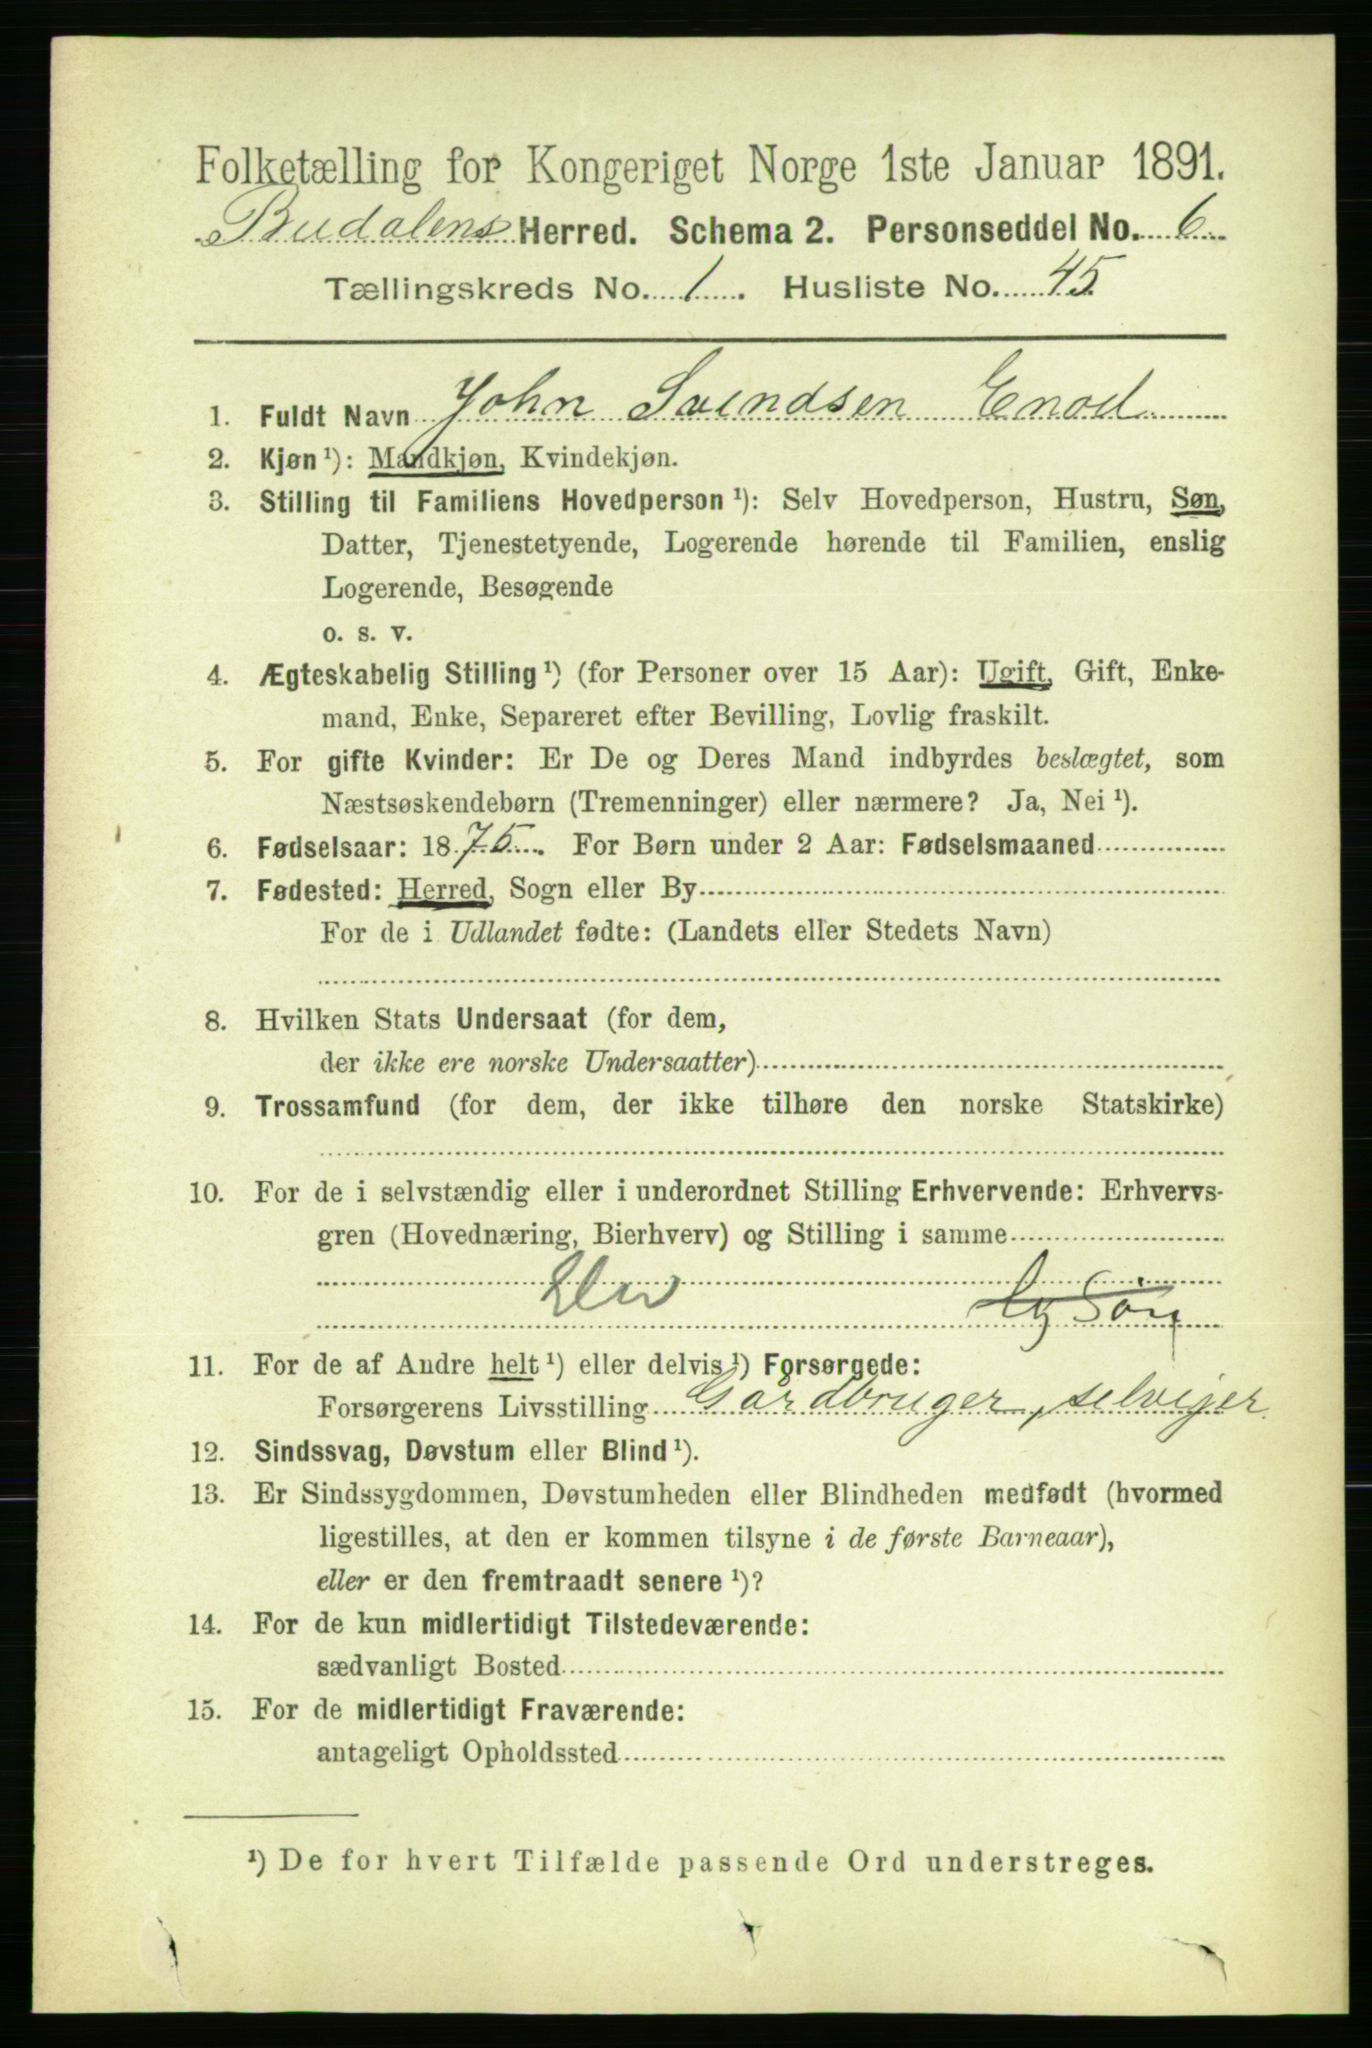 Folketælling for Kongeriget Norge 1ste Januar 1891.
Budalens Herred. Schema 2. Personseddel No. 6
Tællingskreds No. 1. Husliste No. 45
1. Fuldt Navn John Svendsen Enod
2. Kjøn ¹): Mandkjøn, Kvindekjøn.
3. Stilling til Familiens Hovedperson ¹): Selv Hovedperson, Hustru, Søn,
Datter, Tjenestetyende, Logerende hørende til Familien, enslig
Logerende, Besøgende
o. s. v.
4. Ægteskabelig Stilling ¹) (for Personer over 15 Aar): Ugift, Gift, Enke-
mand, Enke, Separeret efter Bevilling, Lovlig fraskilt.
5. For gifte Kvinder: Er De og Deres Mand indbyrdes beslægtet, som
Næstsøskendebørn (Tremenninger) eller nærmere? Ja, Nei ¹).
6. Fødselsaar: 1875. For Børn under 2 Aar: Fødselsmaaned
7. Fødested: Herred, Sogn eller By
For de i Udlandet fødte: (Landets eller Stedets Navn)
8. Hvilken Stats Undersaat (for dem,
der ikke ere norske Undersaatter)
9. Trossamfund (for dem, der ikke tilhøre den norske Statskirke)
10. For de i selvstændig eller i underordnet Stilling Erhvervende: Erhvervs-
gren (Hovednæring, Bierhverv) og Stilling i samme
11. For de af Andre helt ¹) eller delvis ¹) Forsørgede:
Forsørgerens Livsstilling Gardbruger, selvejer
12. Sindssvag, Døvstum eller Blind ¹).
13. Er Sindssygdommen, Døvstumheden eller Blindheden medfødt (hvormed
ligestilles, at den er kommen tilsyne i de første Barneaar),
eller er den fremtraadt senere ¹)?
14. For de kun midlertidigt Tilstedeværende:
sædvanligt Bosted
15. For de midlertidigt Fraværende:
antageligt Opholdssted
¹) De for hvert Tilfælde passende Ord understreges.